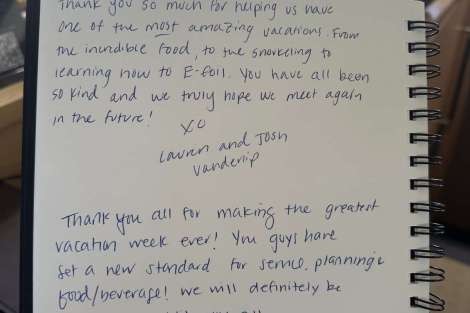 Thank you so much for helping us have
one of the most amazing vacations. From
the incredible food, to the snorkeling to
learning how to E-foil. You have all been
so kind and we truly hope we meet again
in the future!
XO
Lauren and Josh
Vanderlip
Thank you all for making the greatest
vacation week ever! You guys have
set a new standard for service, planning &
food/beverage! we will definitely be